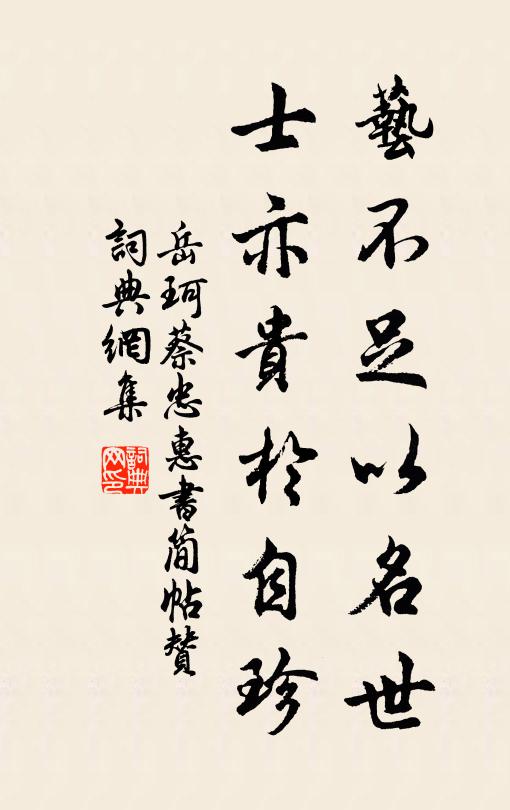 藝不足以名世
士亦貴於自珍
岳珂蔡忠惠書簡帖贊
詞典網集
詞典
网印